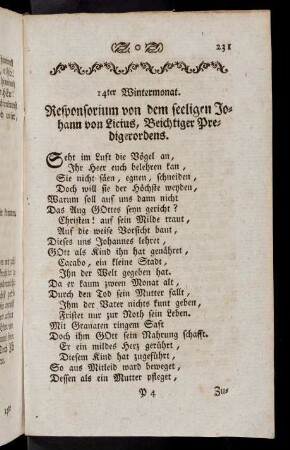 (O) 231
14ter Wintermonat.
Responsorium von dem seeligen Jo-
hann von Licius, Beichtiger Pre-
digerordens.
Seht im Luft die Vögel an,
Ihr Heer euch belehren kan,
Sie nicht säen, egnen, schneiden,
Doch will sie der Höchste weyden,
Warum soll auf uns dann nicht
Das Aug GOttes seyn gericht?
Christen! auf sein Milde traut,
Auf die weise Vorsicht baut,
Dieses uns Johannes lehret,
GOtt als Kind ihn hat genähret,
Carabo, ein kleine Stadt,
Ihn der Welt gegeben hat.
Da er kaum zween Monat alt,
Durch den Tod sein Mutter fallt,
Ihm der Vater nichts kunt geben,
Fristet nur zur Noth sein Leben.
Mit Granaten ringem Saft
Doch ihm GOtt sein Nahrung schafft.
Er ein mildes Herz gerührt,
Diesem Kind hat zugeführt,
So aus Mitleid ward beweget,
Dessen als ein Mutter pfleget,
P 4 Zus